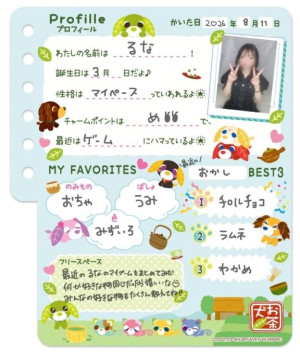 Profille
プロフィール
かいた日 2026年 8月 11日
わたしの名前は るな !
誕生日は 3月 日だよ♪
性格は マイペース っていわれるよ
チャームポイントは め で、
最近は ゲーム にハマっているよ
MY FAVORITES
のみもの
おちゃ
ばしょ
うみ
色
みずいろ
最近の!
おかし BEST3
1 チロルチョコ
2 ラムネ
3 わかめ
フリースペース
最近のるなのマイブームをまとめてみた!
何か好きな物同じだったら嬉しいな
みんなの好きな物もたくさん教えてね!!
お茶犬